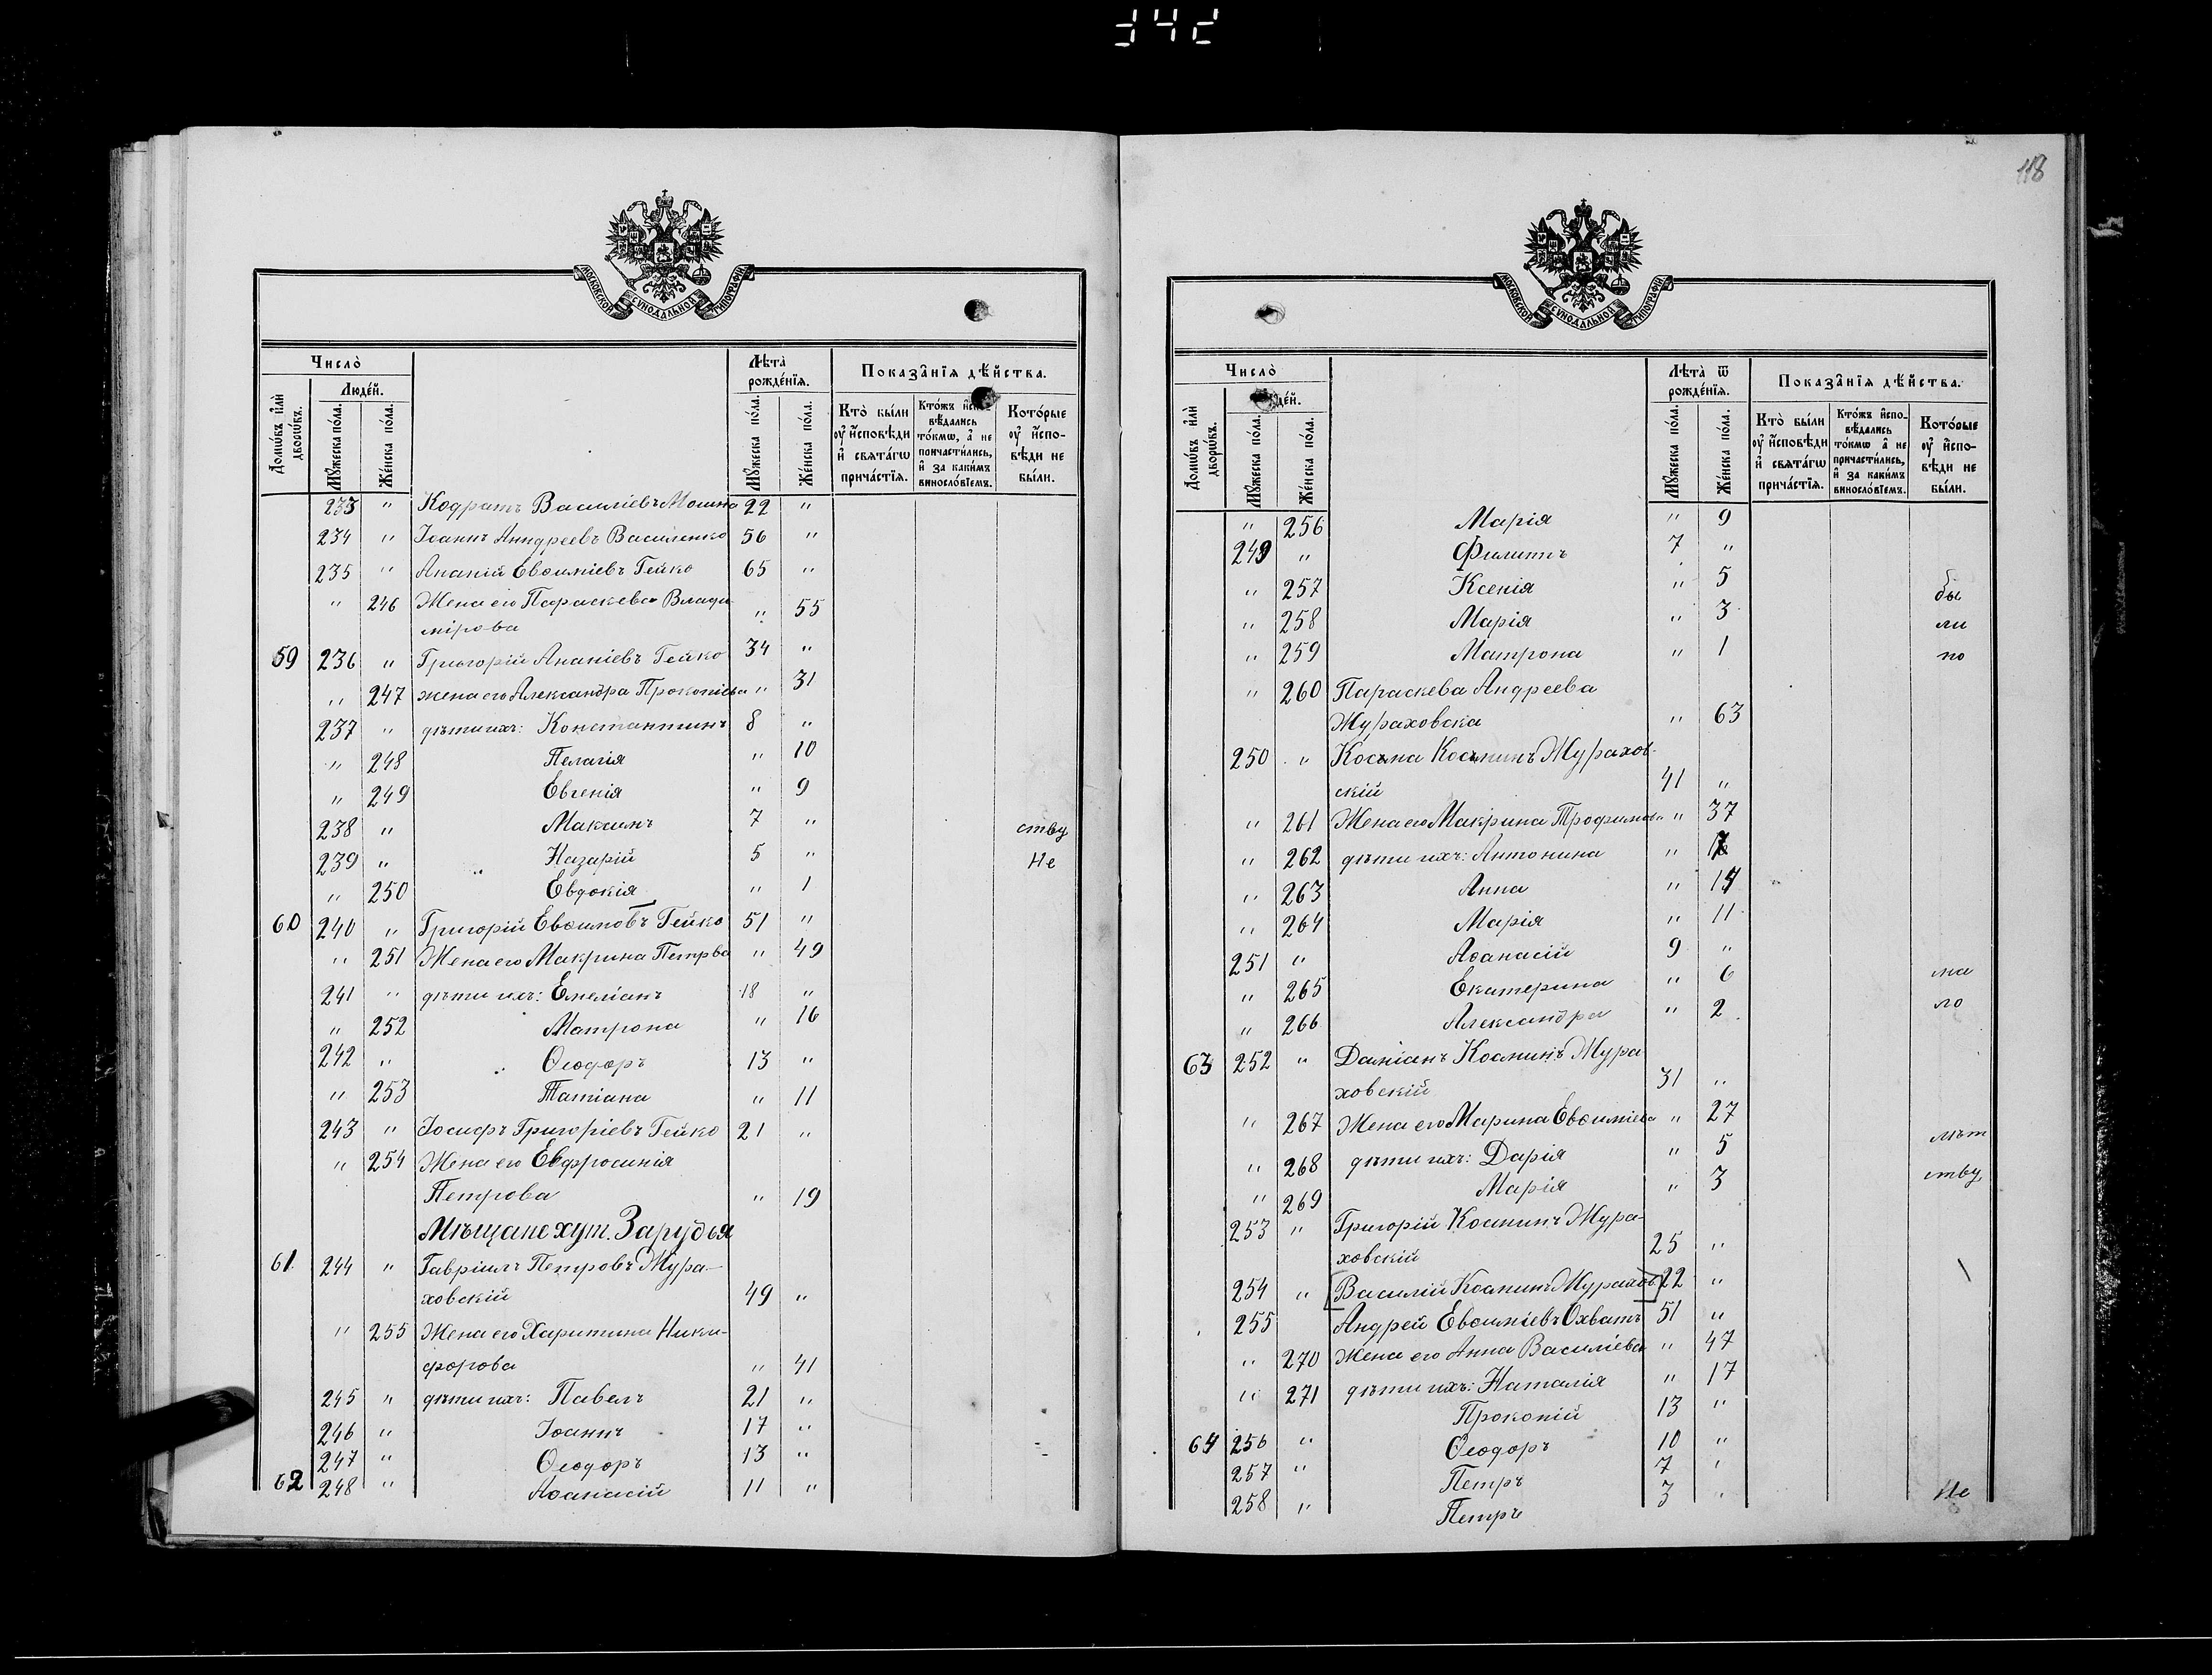 342
118
МОСКОВСКОЙ СѴНОДАЛЬНОЙ ТИПОГРАФІИ
Число̀
Люде́й.
Домѡ́въ и҆лѝ дворѡ́въ.
Мꙋ́жеска по́ла.
Же́нска по́ла.
Лѣ́та̀
рожде́нїѧ.
Мꙋ́жеска по́ла.
Же́нска по́ла.
Показа̑нїѧ дѣ́йства.
Кто̀ бы́ли
ᲂу҆ и҆сповѣди
и҆ свѧта́гѡ
прича́стїѧ.
Кто́жъ и҆спо-
вѣ́дались
то́кмѡ, а҆ не
причасти́лись,
и҆ за каки́мъ
виносло́вїемъ.
Кото́рые
ᲂу҆ и҆спо-
вѣди не
бы́ли.
233 " Кодратъ Василіевъ Мошна 22 "
234 " Іоаннъ Андреевъ Василенко 56 "
235 " Ананій Евѳиміевъ Гейко 65 "
" 246 Жена его Параскева Влади " 55
мірова
59 236 " Григорій Ананіевъ Гейко 34 "
" 247 жена его Александра Прокопіева " 31
237 " дѣти ихъ: Константинъ 8 "
" 248 Пелагія " 10
" 249 Евгенія " 9
238 " Максимъ 7 " ству
239 " Назарій 5 " Не
" 250 Евдокія " 1
60 240 " Григорій Евѳимовъ Гейко 51 "
" 251 Жена его Макрина Петрва " 49
241 " дѣти ихъ: Емеліанъ 18 "
" 252 Матрона " 16
242 " Ѳеодоръ 13 "
" 253 Татіана " 11
243 " Іосифъ Григоріевъ Гейко 21 "
" 254 Жена его Евфросинія
Петрова " 19
Мѣщане хут. Зарудья
61 244 " Гавріилъ Петровъ Жура-
ховскій 49 "
" 255 Жена его Харитина Ники-
форова " 41
245 " дѣти ихъ: Павелъ 21 "
246 " Іоаннъ 17 "
247 " Ѳеодоръ 13 "
62 248 " Аѳанасій 11 "
МОСКОВСКОЙ СѴНОДАЛЬНОЙ ТИПОГРАФІИ
Число̀
де́й.
Домѡ́въ и҆лѝ дворѡ́въ.
Мꙋ́жеска по́ла.
Же́нска по́ла.
Лѣ́та̀ ѿ
рожде́нїѧ.
Мꙋ́жеска по́ла.
Же́нска по́ла.
Показа̑нїѧ дѣ́йства.
Кто̀ бы́ли
ᲂу҆ и҆сповѣди
и҆ свѧта́гѡ
прича́стїѧ.
Кто́жъ и҆спо-
вѣ́дались
то́кмѡ а҆ не
причасти́лись,
и҆ за каки́мъ
виносло́вїемъ.
Кото́рые
ᲂу҆ и҆спо-
вѣди не
бы́ли.
" 256 Марія " 9
249 " Филиппъ 7 "
" 257 Ксенія " 5 бы
" 258 Марія " 3 ли
" 259 Матрона " 1 по
" 260 Параскева Андреева
Жураховска " 63
250 " Косьма Косьминъ Журахов-
скій 41 "
" 261 Жена его Макрина Трофимова " 37
" 262 дѣти ихъ: Антонина "
" 263 Анна " 14
" 264 Марія " 11
251 " Аѳанасій 9 "
" 265 Екатерина " 6 ма
" 266 Александра " 2 ло
63 252 " Даміанъ Косминъ Жура
ховскій 31 "
" 267 Жена его Марина Евѳиміева " 27
" 268 дѣти ихъ: Дарія " 5 лѣт
" 269 Марія " 3 ству
253 " Григорій Косминъ Жура-
ховскій 25 "
254 " [Василій Косминъ Журахов] 22 "
255 Андрей Евѳиміевъ Охватъ 51 "
" 270 Жена его Анна Василіева " 47
" 271 дѣти ихъ: Наталія " 17
Прокопій 13 "
64 256 " Ѳеодоръ 10 "
257 " Петръ 7 "
258 " Петръ 3 " Не